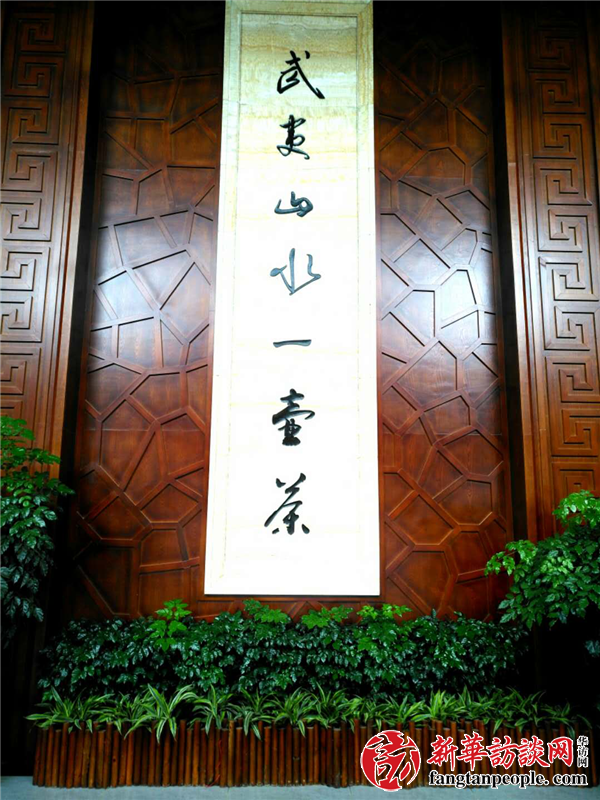 武夷山水一壶茶
访
新華訪談网
华访网
fangtanpeople.com